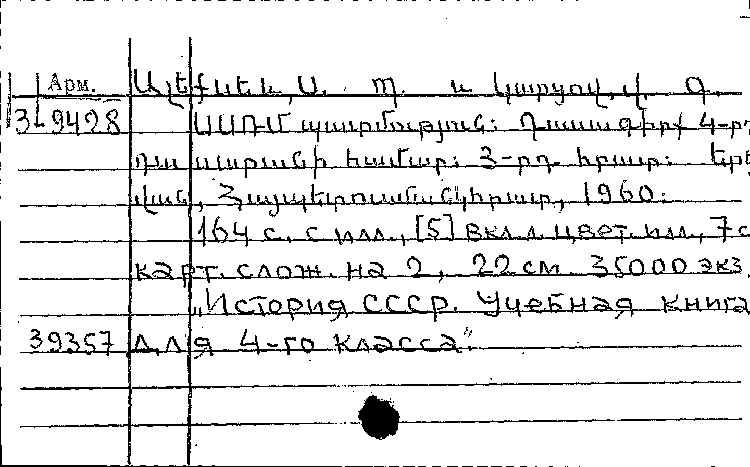 Арм.
Ալեքսեև, Ս. Պ. և Կարցով, Վ. Գ.
3 L 9428 ՍՍՌՄ պատմություն։ Դասագիրք 4-րդ
դասարանի համար։ 3-րդ. հրատ։ Երե
վան, Հայպետուսմանկհրատ, 1960։
164 с. с илл., [5] вкл.л. цвет. ил., 7 с.
карт. слож. на 2, 22 см. 35000 экз.
„История СССР. Учебная книга
39357 для 4-го класса“.